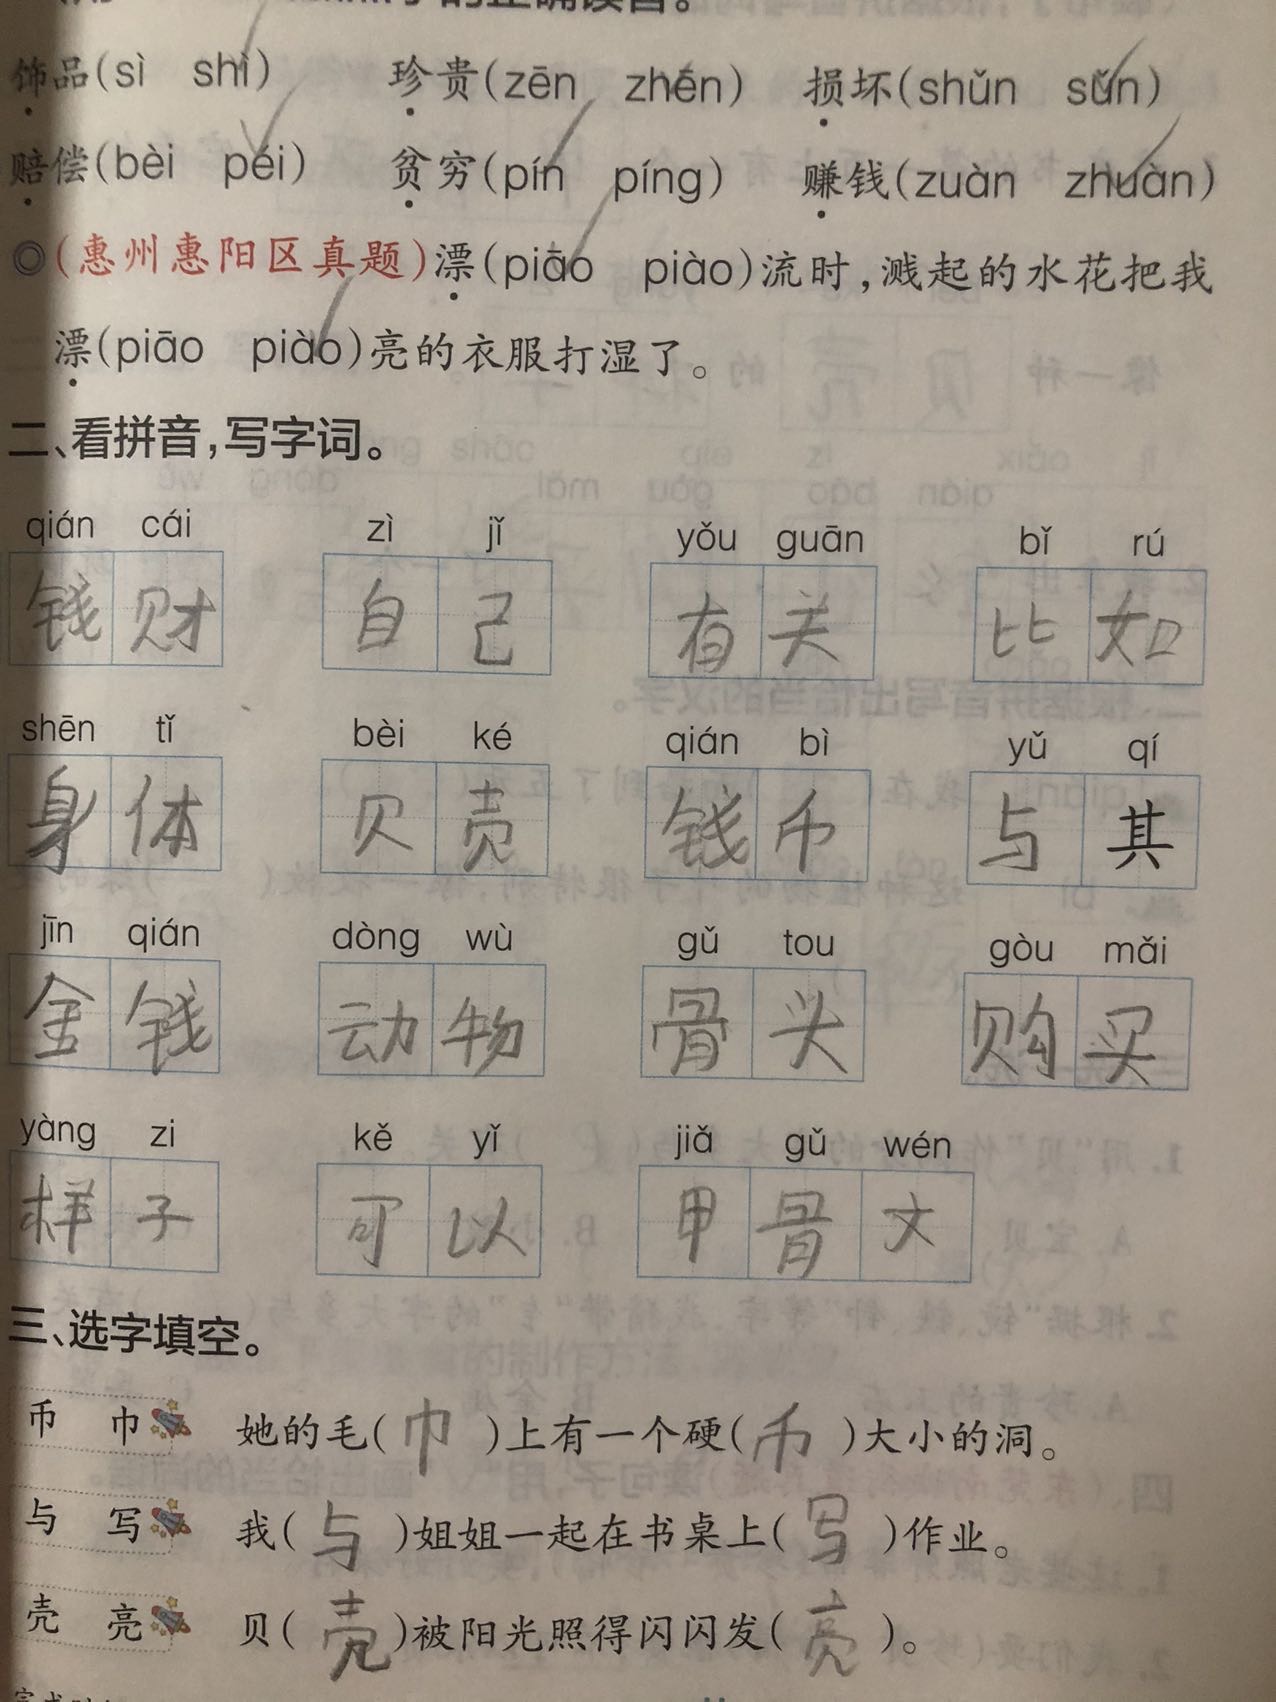 的正确读音。
饰品(sì shì) 珍贵(zēn zhēn) 损坏(shǔn sǔn)
赔偿(bèi péi) 贫穷(pín píng) 赚钱(zuàn zhuàn)
◎(惠州惠阳区真题)漂(piāo piào)流时,溅起的水花把我
漂(piāo piào)亮的衣服打湿了。
二、看拼音,写字词。
qián cái zì jǐ yǒu guān bǐ rú
钱财 自己 有关 比如
shēn tǐ bèi ké qián bì yǔ qí
身体 贝壳 钱币 与其
jīn qián dòng wù gǔ tou gòu mǎi
金钱 动物 骨头 购买
yàng zi kě yǐ jiǎ gǔ wén
样子 可以 甲骨文
三、选字填空。
币 巾 她的毛(巾)上有一个硬(币)大小的洞。
与 写 我(与)姐姐一起在书桌上(写)作业。
壳 亮 贝(壳)被阳光照得闪闪发(亮)。